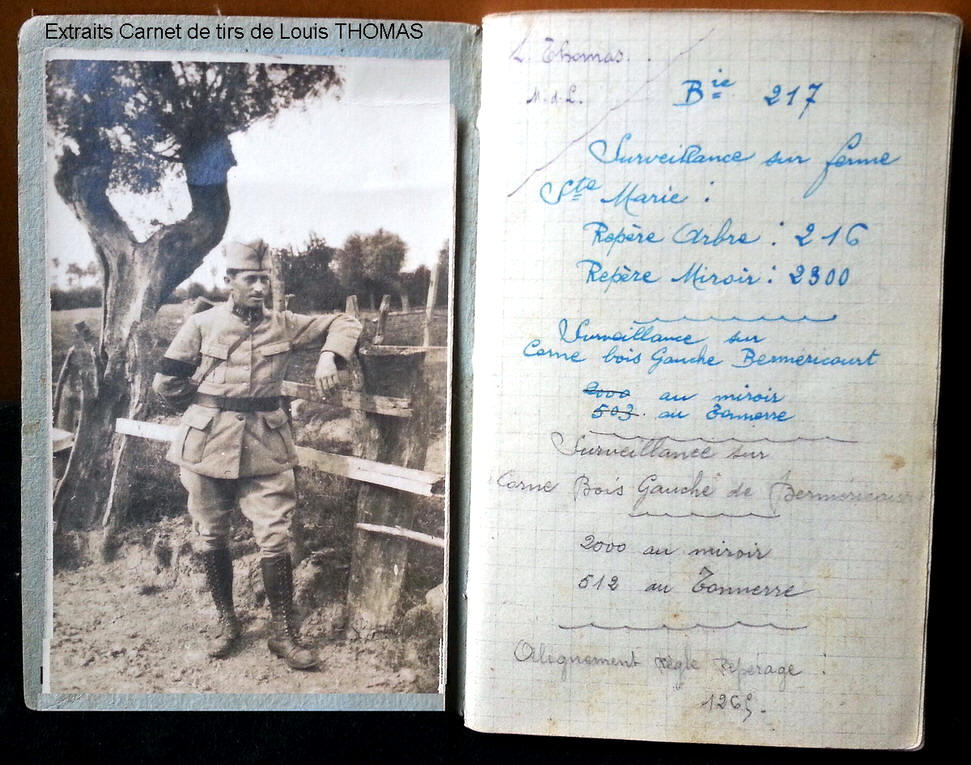 Extraits Carnet de tirs de Louis THOMAS
L. Thomas.
M.d.L.
Bie 217
Surveillance sur ferme
Ste Marie :
Repère Arbre : 216
Repère Miroir : 2300
Surveillance sur
Corne bois Gauche Berméricourt
2000 au miroir
503. au Tonnerre
Surveillance sur
Corne Bois Gauche de Berméricourt
2000 au miroir
512 au Tonnerre
Alignement Règle Repérage :
1265.